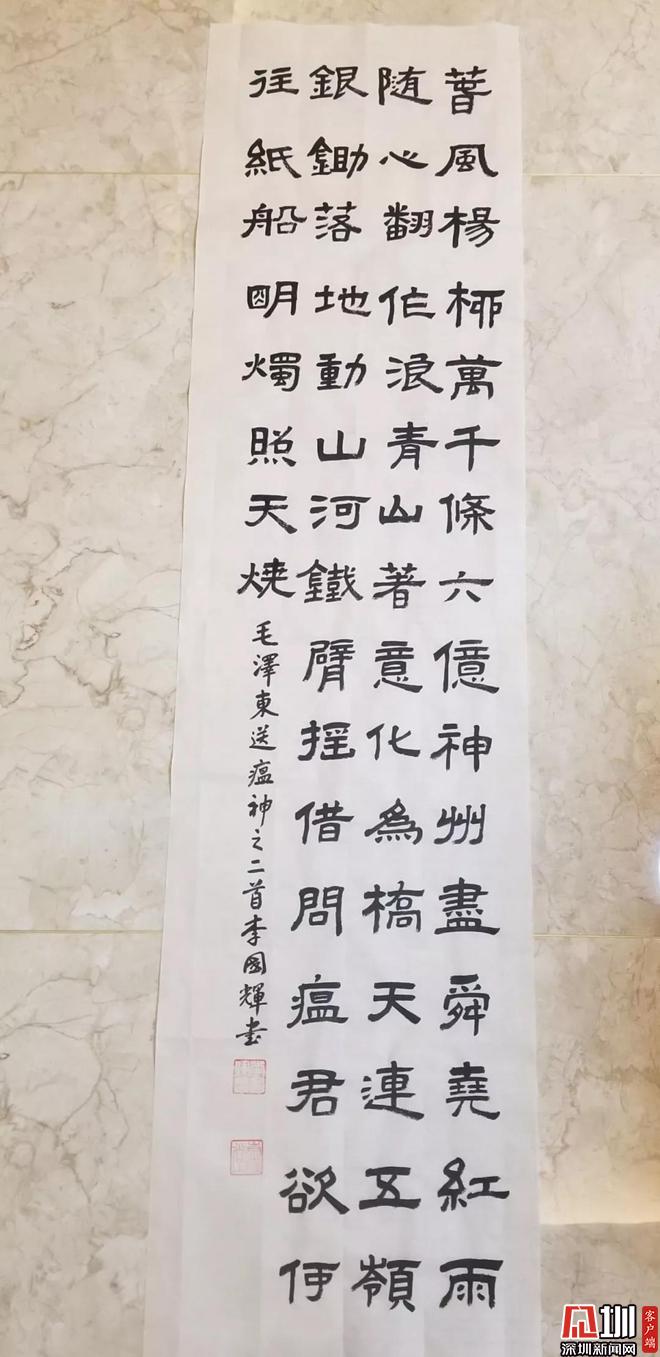 萅風楊柳萬千條六億神州盡舜堯紅雨
随心翻作浪青山著意化為橋天連五嶺
銀鋤落地動山河鐵臂摇借問瘟君欲何
往紙船明燭照天燒
毛澤東送瘟神之二首李國輝书
见圳
客户端
深圳新闻网